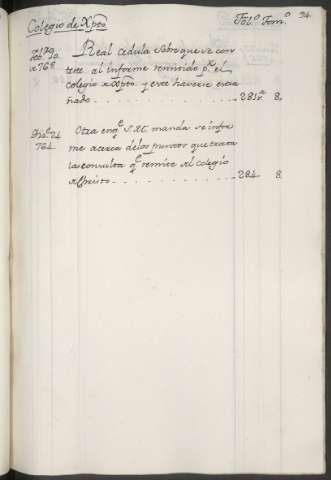 Colegio de Xpto. Fol.º Tom.º 94.
Real cedula sobre que se con
texte al informe remitido p.r el
colegio de Xpto. y este haverse extra
ñado 281 8.
764 Otra en q.e S.M. manda se infor
me acerca delos puntos que trata
la consulta q.e remite al colegio
de Christo 284 8.